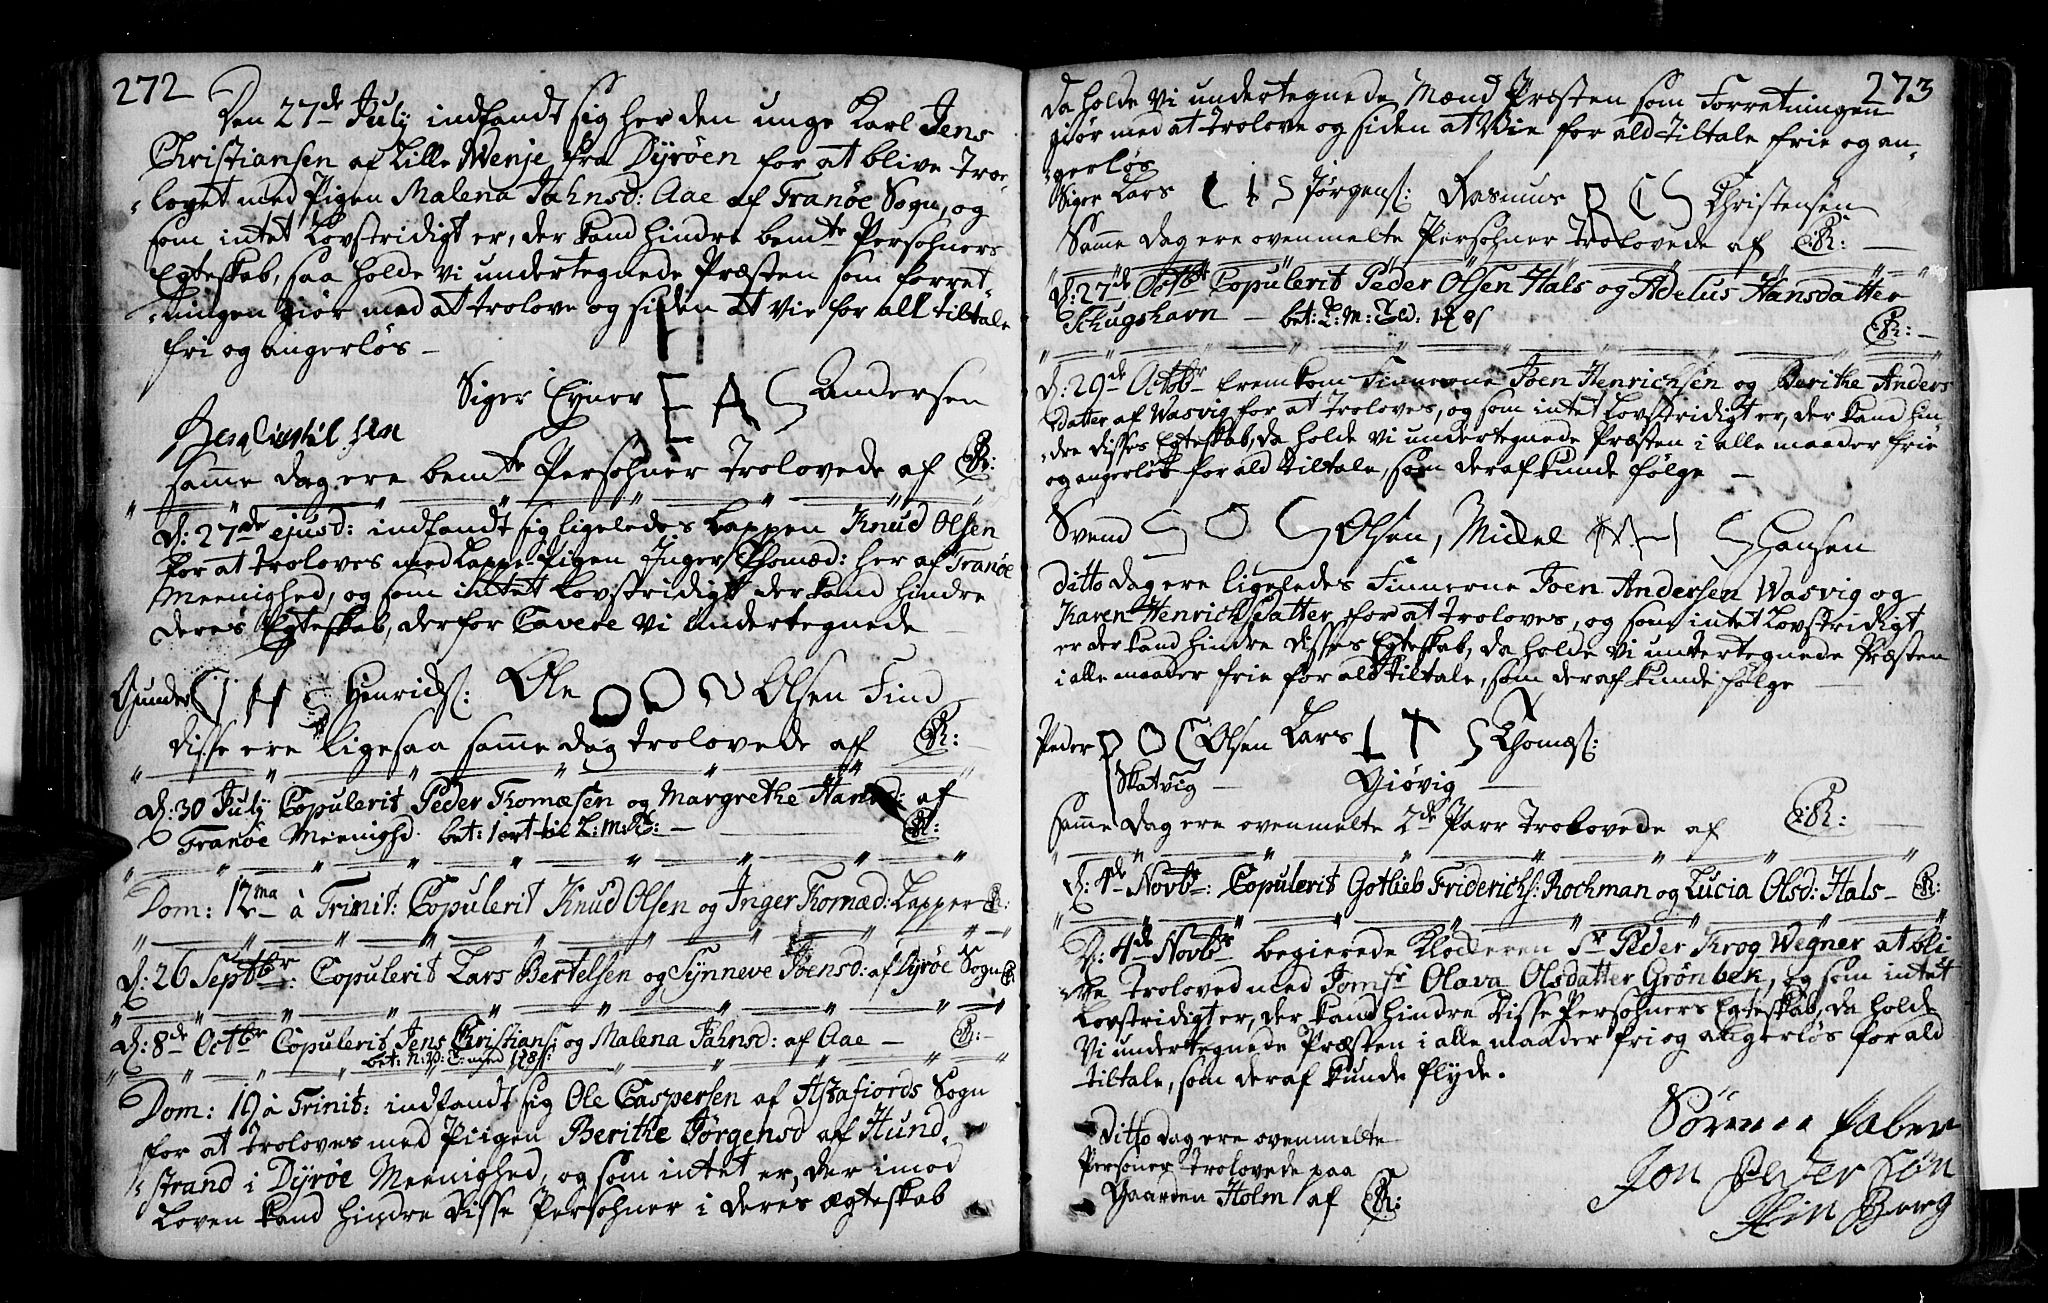 272
Den 27de July indfandt sig her den unge Karl Jens
Christiansen af Lille Wenje fra Dyröen for at blive troe-
-lovet med Pigen Malena Jahnsd: Aae af Tranöe Sogn, og
som intet Lovstridigt er, der kand hindre bemte Persohners
Egteskab, saa holde vi undertegnede Præsten som forret-
-ningen giör med at trolove og siden at vie for all tiltale
fri og angerlös –
Siger Eyner E A S Andersen
samme dag ere bemte Persohner trolovede af
D: 27de ejusd: indfandt sig ligeledes Lappen Knud Olsen
for at troloves med Lappe-Pigen Inger Thomæd: her af Tranöe
Meenighed, og som intet Lovstridigt der kand hindre
deres Egteskab, derfor Cavere vi undertegnede
Gunder G H S Henrichs: Ole O O Olsen Find
disse ere ligesaa samme dag trolovede af
D: 30 July Copulerit Peder Thomæsen og Margrethe Hansd: af
Tranöe Meenighd. bet: 1 ort
Dom: 12ma à Trinit: Copulerit Knud Olsen og Inger Thomæd: Lapper
D: 26 Septbr: Copulerit Lars Bertelsen og Synneve Joensd: af Dyröe Sogn
D: 8de Octbr Copulerit Jens Christians: og Malena Jahnsd: af Aae –
Dom: 19 à Trinit: indfandt sig Ole Caspersen af Astafiords Sogn
for at troloves med Piigen Berithe Jörgensd af Hund-
-strand i Dyröe Meenighed, og som intet er, der imod
Loven kand hindre disse Persohner i deres ægteskab
273
da holde vi undertegnede Mænd Præsten som Forretningen
giör med at trolove og siden at Vie for ald tiltale frie og an-
-gerlös
Siger Lars L I S Jörgens: Rasmus R C S Christensen
Samme dag ere ovenmelte Persohner trolovede af
D: 27de Octbr Copulerit Peder Olsen Hals og Adelus Hansdatter
Schugshavn –
D: 29de Octobr fremkom Finnerne Joen Henrichsen og Berithe Anders
datter af Wasvig for at troloves, og som intet Lovstridigt er, der kand hin-
-dre disses Egteskab, da holde vi undertegnede Præsten i alle maader frie
og angerlös for ald tiltale, som deraf kunde fölge –
Svend S O S Olsen, Mickel Hansen
ditto dag ere ligeledes Finnerne Joen Andersen Wasvig og
Karen Henrichsdatter for at troloves, og som intet Lovstridigt
er der kand hindre disses Egteskab, da holde vi undertegnede Præsten
i alle maader frie for ald tiltale, som deraf kunde fölge
Peder P O S Olsen Lars L T S Thomæs:
Skatvig – Giövig –
samme dag ere ovenmelte 2de Parr trolovede af
D: 4de Novbr: Copulerit Gotlieb Friderichs: Rochman og Lucia Olsd: Hals –
D: 4de Novbr begierede Klockeren Sr Peder Krog Wegner at bli
-ve troloved med Jomfr Olava Olsdatter Grönbek, og som intet
Lovstridigt er, der kand hindre disse Persohners Egteskab, da holde
vi undertegnede Præsten i alle maader fri og angerlös for ald
tiltale, som deraf kunde flyde.
Sören Faber
Jon Peder Sön
Hin Borg
Ditto dag ere ovenmelte
Personer trolovede paa
Gaarden Holm af